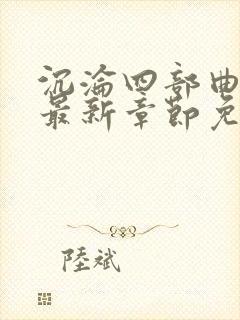 沉淪四部曲
最新章節免
陸斌